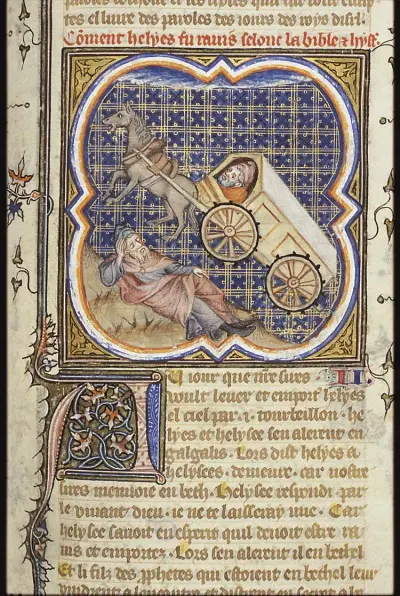 tes el liure des paroles des iours des roys disrl.
Cōment helyes fu rauis selonc la bible & hyst.
El iour que nr̄e sires
voult leuer et emport helyes
el ciel par .i. tourbeillon. he
lyes et helysee sen alerent en
galgalis. Lors dist helyes a
helysees. demeure. car nostre
sires menuoie en beth. Helysee respondi. par
le viuant dieu. ie ne te laisseray mie. Car
helysee sauoit en esperit quil deuoit estre ra
uis et emportez. Lors sen alerent il en bethel
Et li filz des pphetes qui estoient en bethel leur
vindrent a lencontre et distrent en secret a he